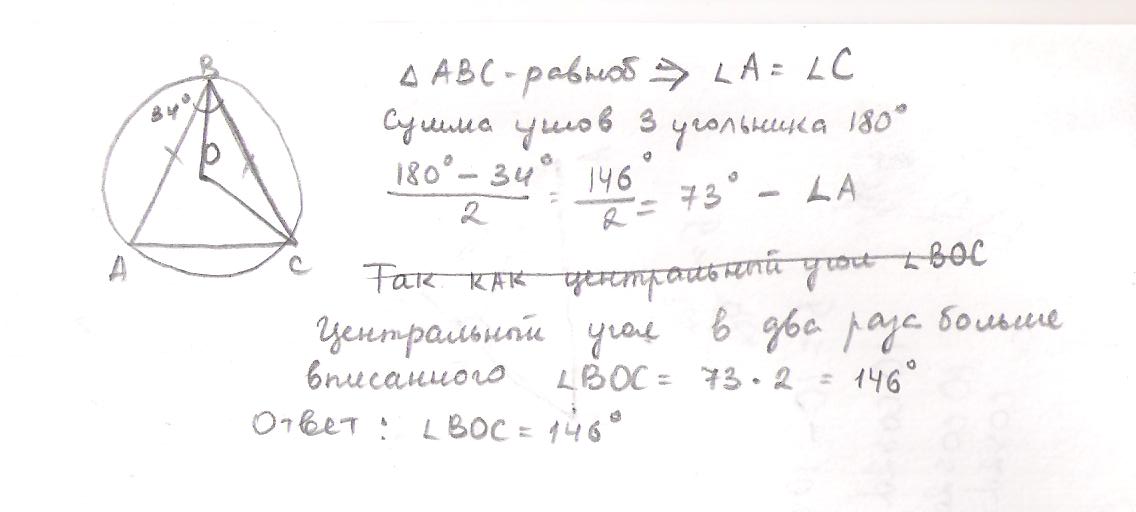 B
34°
O
A
C
Δ ABC - равноб ⇒ ∠A = ∠C
Сумма углов 3 угольника 180°
180° - 34° / 2 = 146° / 2 = 73° - ∠A
Так как центральный угол ∠BOC
Центральный угол в два раза больше
вписанного ∠BOC = 73 · 2 = 146°
Ответ: ∠BOC = 146°